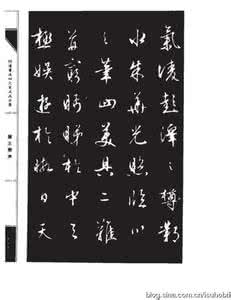 氣凌彭澤之樽鄴
水朱華光照臨川
之筆四美具二難
并窮眄睇於中天
極娛遊於暇日天